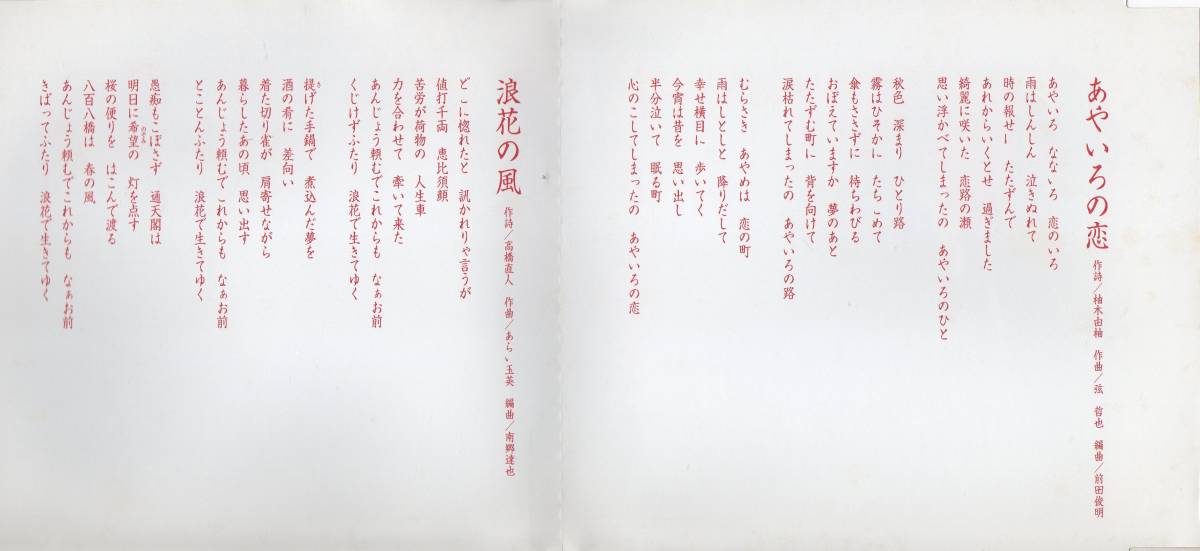 あやいろの恋
作詩／柚木由柚　作曲／弦　哲也　編曲／前田俊明
あやいろ　なないろ　恋のいろ
雨はしんしん　泣きぬれて
時の報せ－　たたずんで
あれからいくとせ　過ぎました
綺麗に咲いた　恋路の瀬
思い浮かべてしまったの　あやいろのひと
秋色　深まり　ひとり路
霧はひそかに　たちこめて
傘もささずに　待ちわびる
おぼえていますか　夢のあと
たたずむ町に　背を向けて
涙枯れてしまったの　あやいろの路
むらさき　あやめは　恋の町
雨はしとしと　降りだして
幸せ横目に　歩いてく
今宵は昔を　思い出し
半分泣いて　眠る町
心のこしてしまったの　あやいろの恋
浪花の風
作詩／高橋直人　作曲／あらい玉英　編曲／南郷達也
どこに惚れたと　訊かれりゃ言うが
値打千両　恵比須顔
苦労が荷物の　人生車
力を合わせて　牽いて来た
あんじょう頼むでこれからも　なぁお前
くじけずふたり　浪花で生きてゆく
提げた手鍋で　煮込んだ夢を
酒の肴に　差向い
着た切り雀が　肩寄せながら
暮らしたあの頃　思い出す
あんじょう頼むで これからも　なぁお前
とことんふたり　浪花で生きてゆく
愚痴もこぼさず　通天閣は
明日に希望の　灯を点す
桜の便りを　はこんで渡る
八百八橋は　春の風
あんじょう頼むでこれからも　なぁお前
きばってふたり　浪花で生きてゆく